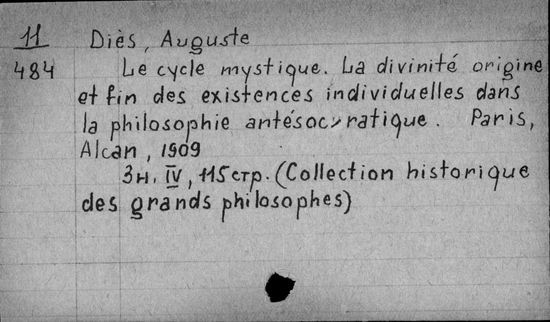 11 Diès, Auguste
484 Le cycle mystique. La divinité origine
et fin des existences individuelles dans
la philosophie antésocratique. Paris,
Alcan, 1909
3н. IV, 115 стр. (Collection historique
des grands philosophes)